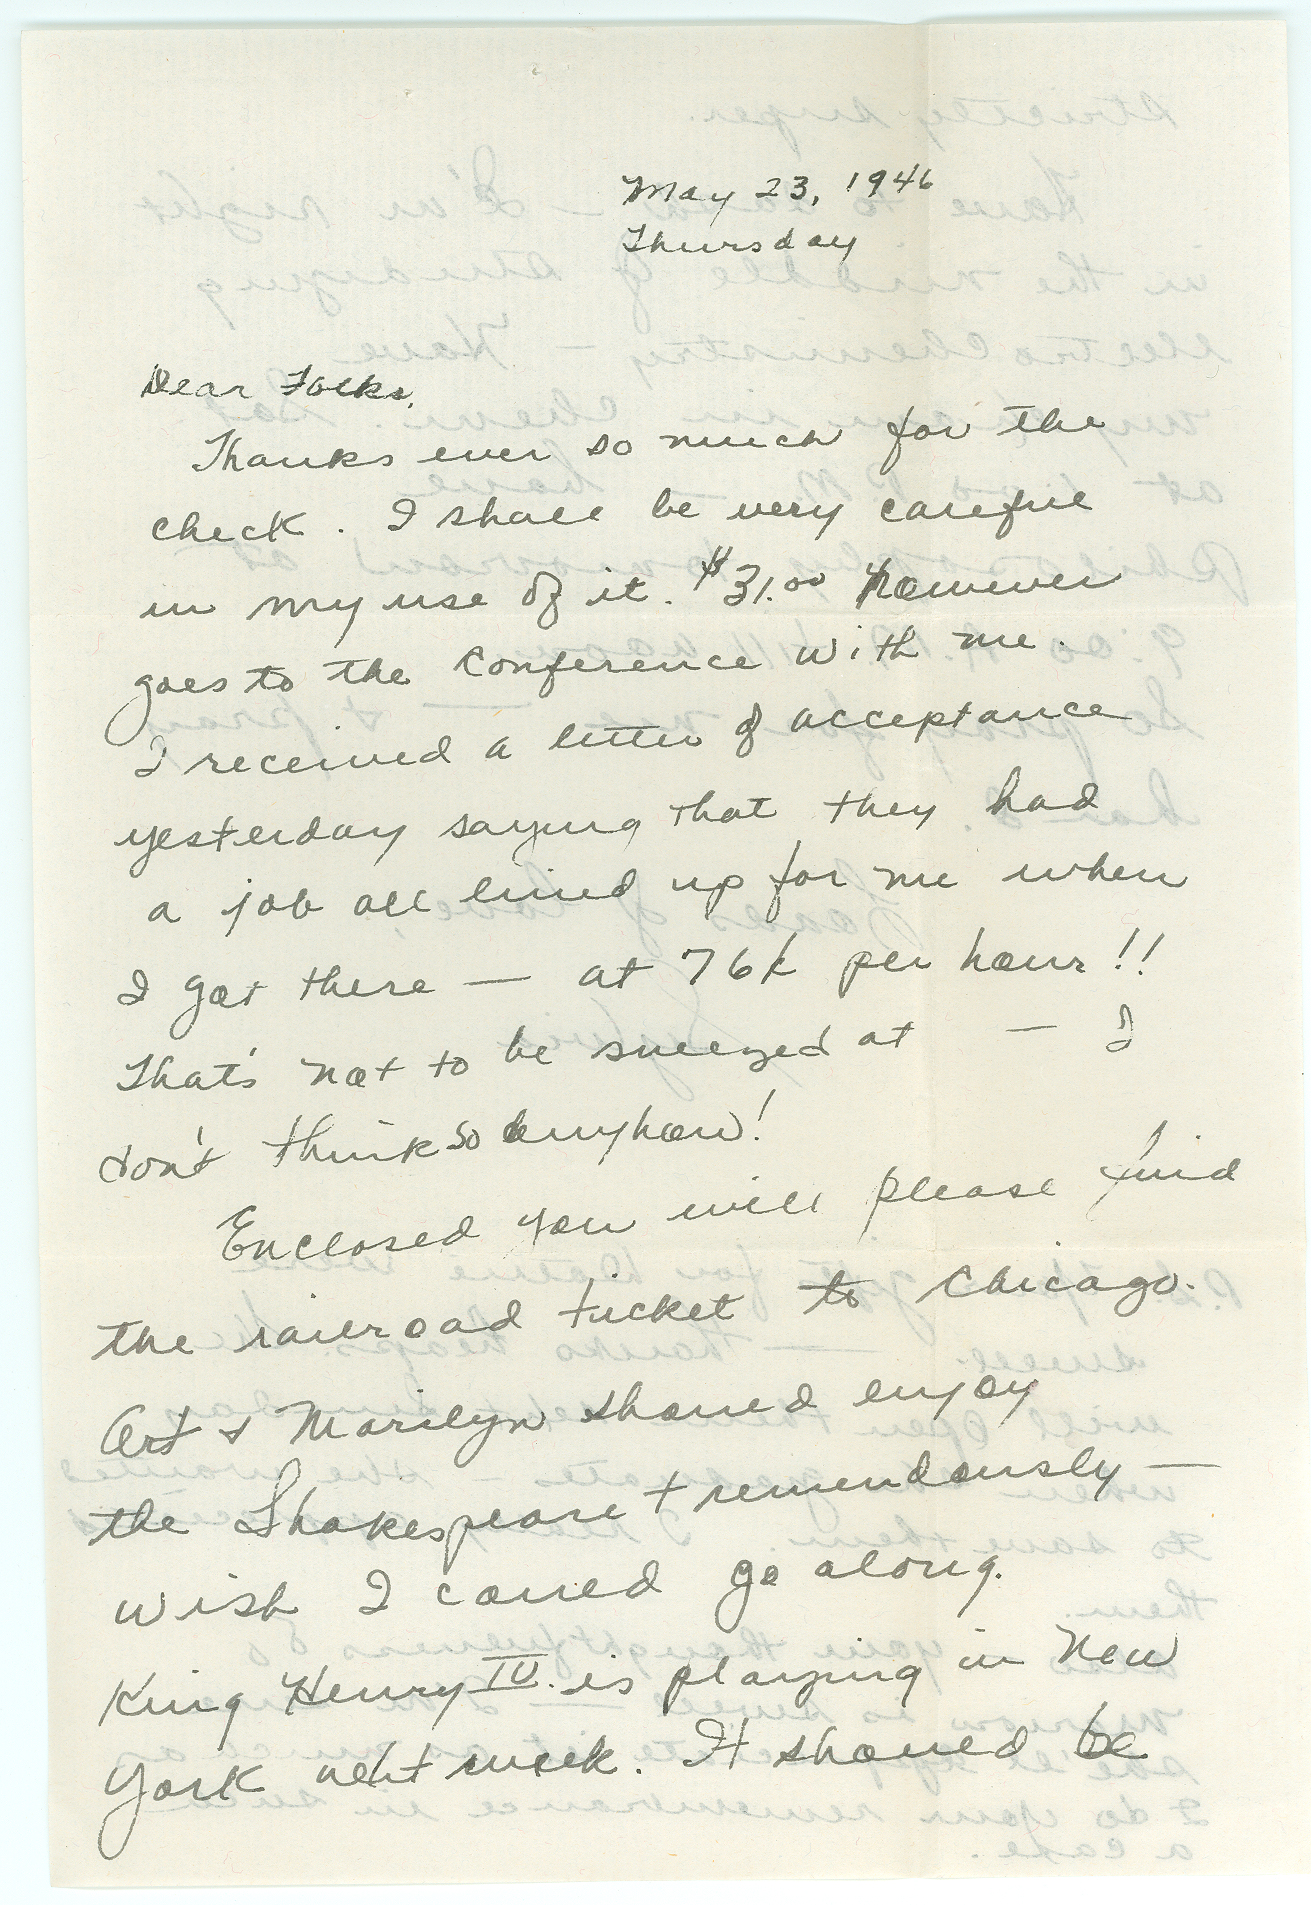 May 23, 1946
Thursday
Dear Folks,
Thanks ever so much for the
check. I shall be very careful
in my use of it. $31.00 however
goes to the conference with me.
I received a letter of acceptance
yesterday saying that they had
a job all lined up for me when
I got there — at 76¢ per hour!!
That's not to be sneezed at — I
don't think so anyhow!
Enclosed you will please find
the railroad ticket to Chicago.
Art & Marilyn should enjoy
the Shakespeare tremendously —
wish I could go along.
King Henry IV is playing in New
York next week. It should be